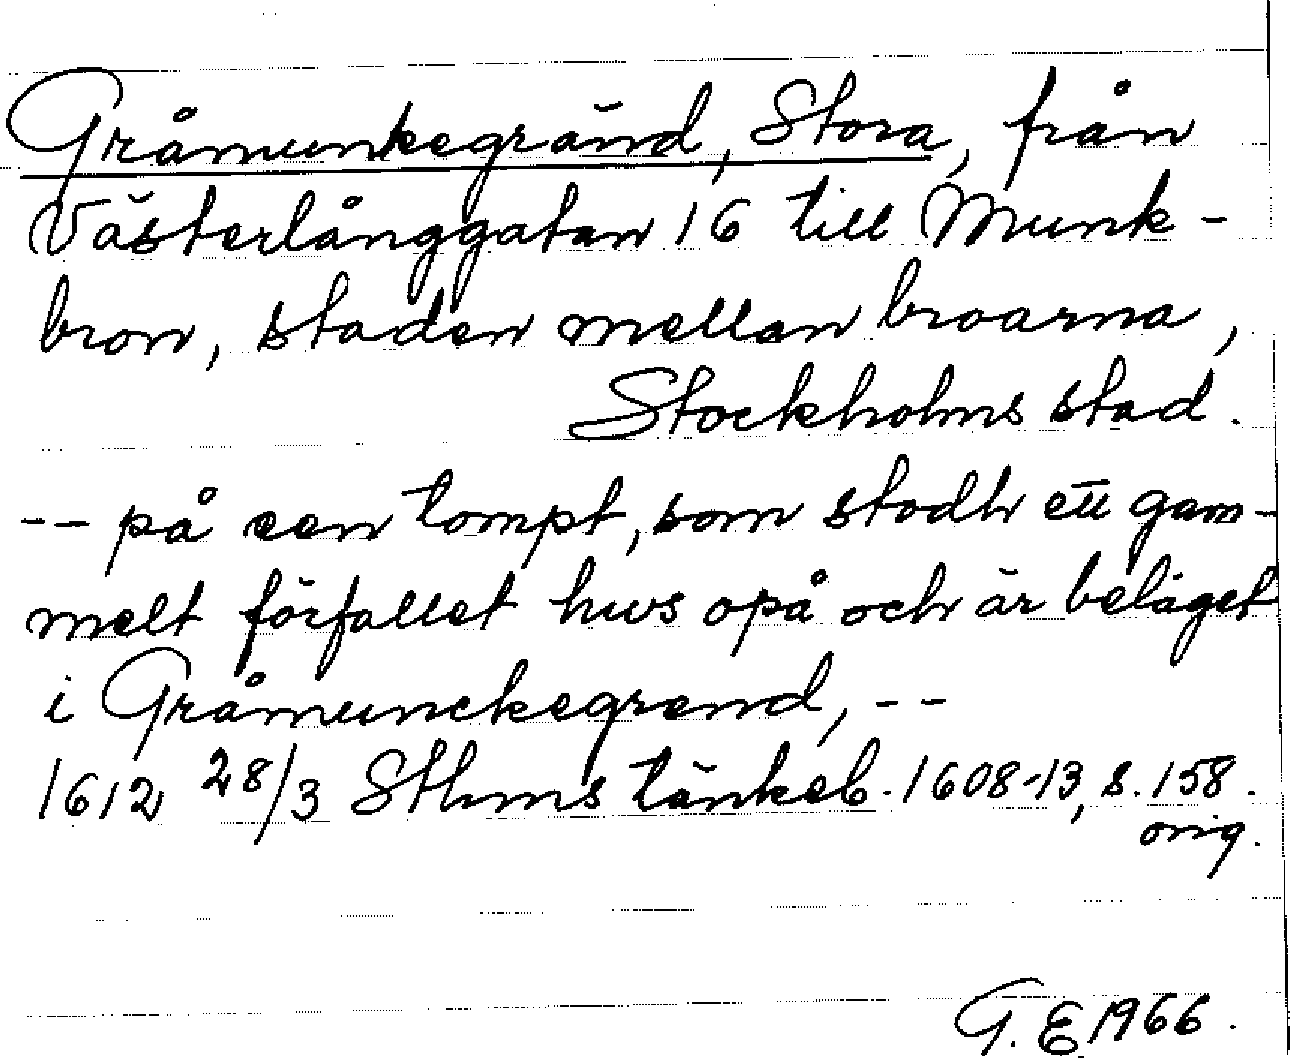 Gråmunkegränd, Stora, från
Västerlånggatan 16 till Munk-
bron, staden mellan broarna,
Stockholms stad.
-- på een tompt, som stodh ett gam-
melt förfallet hws opå och är beläget
i Gråmunckegrend, --
1612 28/3 Sthms tänkeb. 1608-13, s. 158.
orig.
G. E 1966.